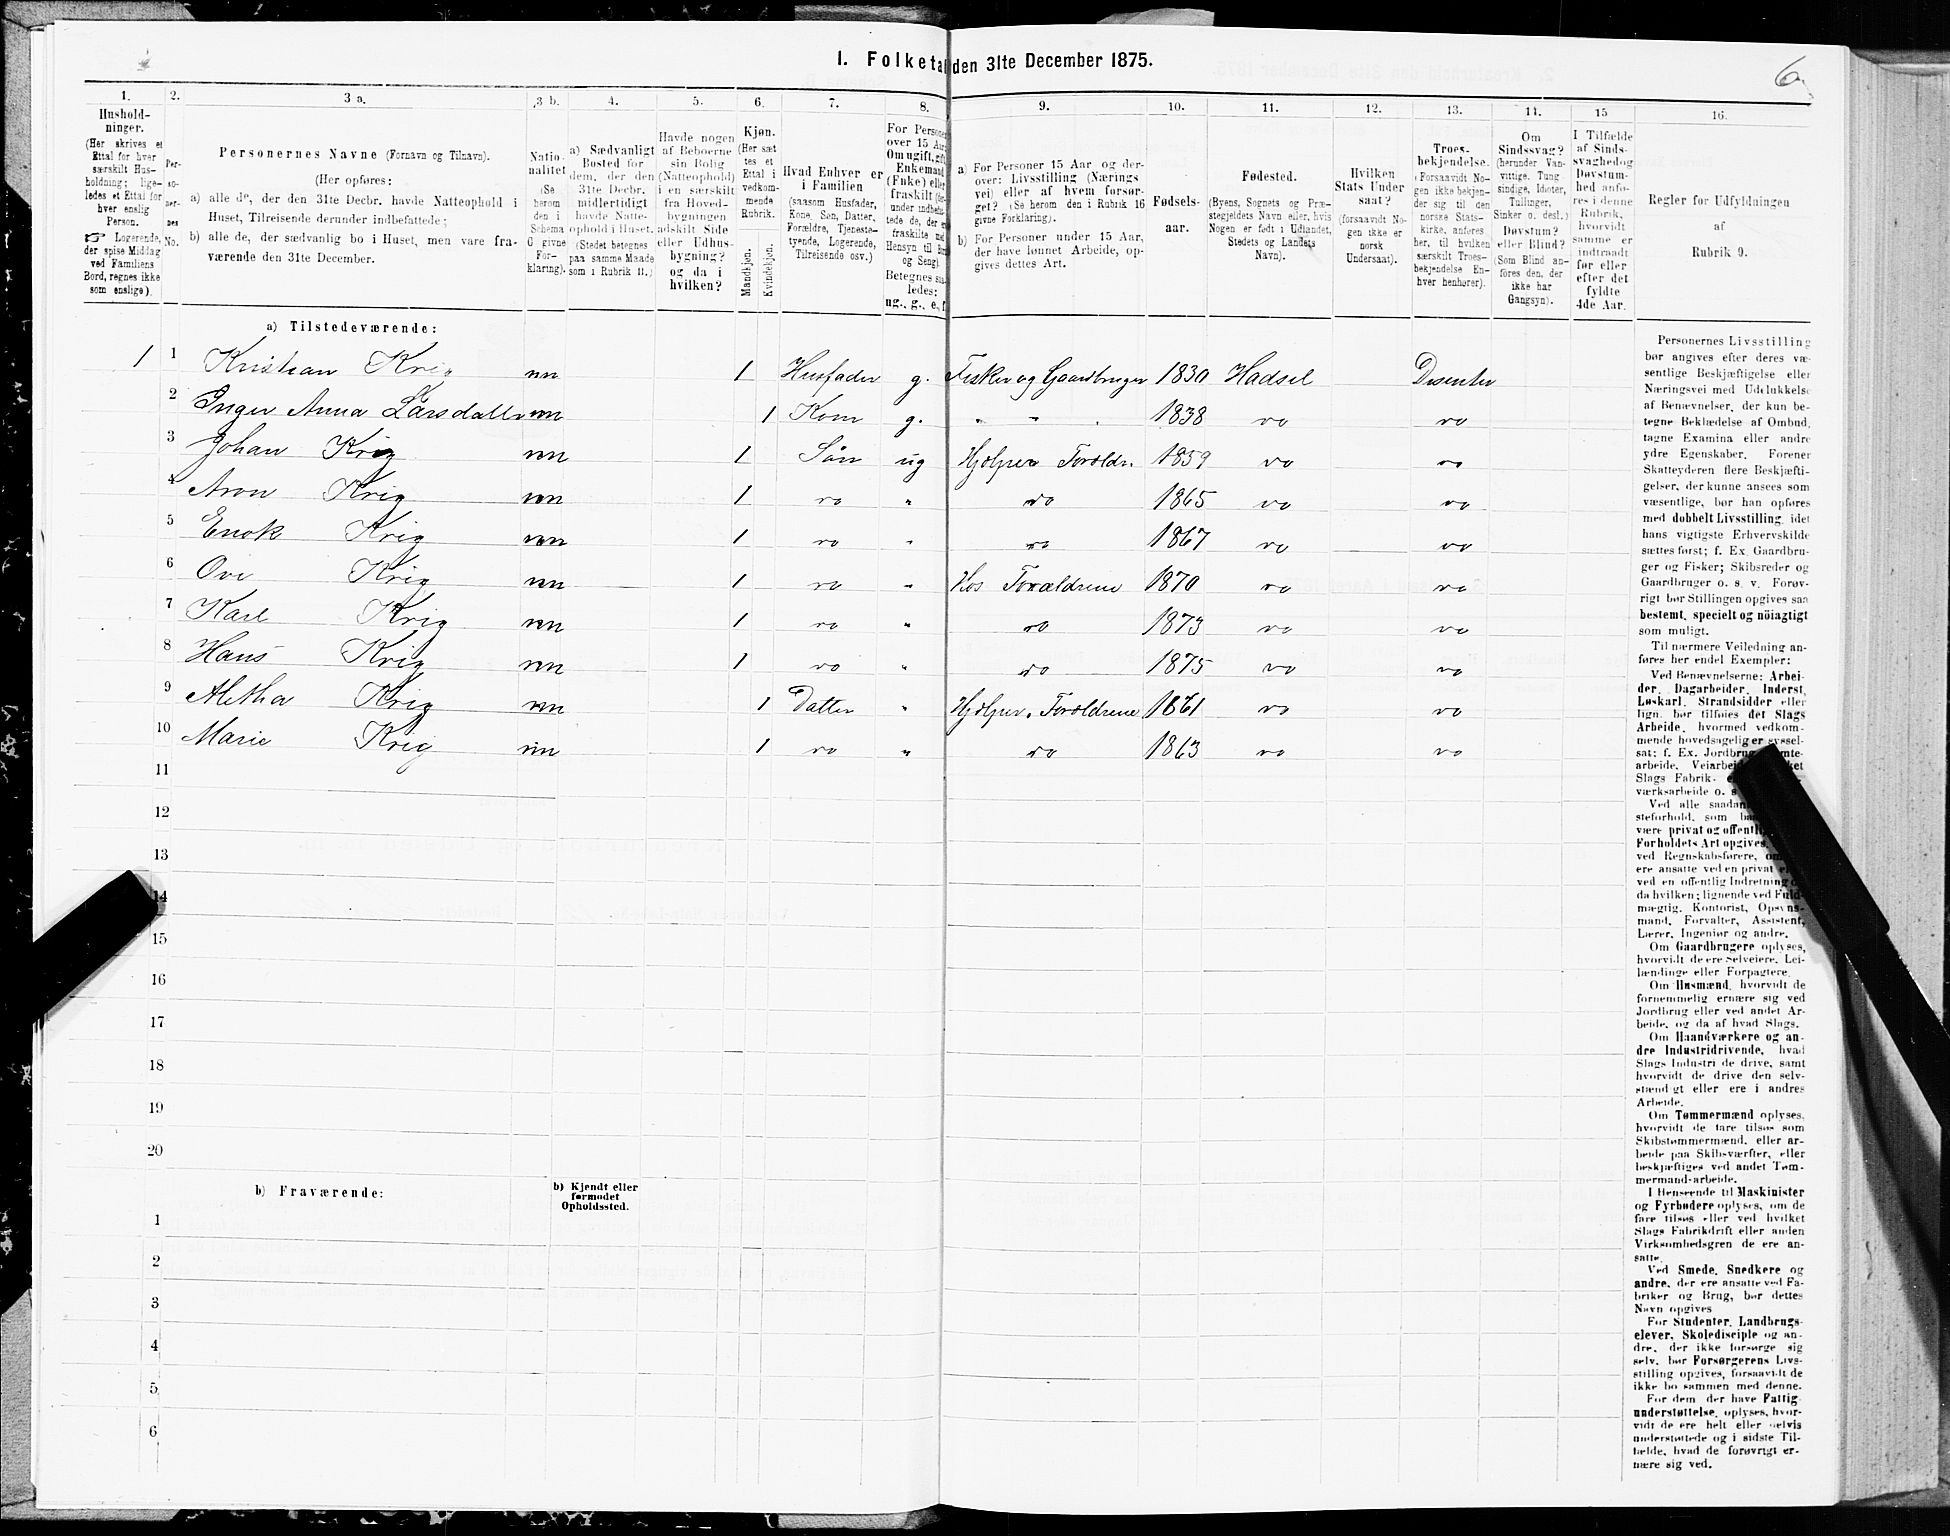 I. Folketal den 31te December 1875.
6
1.
Hushold-
ninger.
(Her skrives et
Ettal for hver
særskilt Hus-
holdning; lige-
ledes et Ettal for
hver enslig
Person.
☞ Logerende,
der spise Middag
ved Familiens
Bord, regnes ikke
som enslige).
2.
Per-
so-
ner-
nes
No.
3 a.
Personernes Navne (Fornavn og Tilnavn).
(Her opføres:
a) alle de, der den 31te Decbr. havde Natteophold i
Huset, Tilreisende derunder indbefattede;
b) alle de, der sædvanlig bo i Huset, men vare fra-
værende den 31te December.
3 b.
Natio-
nalitet
(Se
herom
den i
Schema
G givne
For-
klaring).
4.
a) Sædvanligt
Bosted for
dem, der den
31te Decbr.
midlertidigt
havde Natte-
ophold i Huset.
(Stedet betegnes
paa samme Maade
som i Rubrik 11.)
5.
Havde nogen
af Beboerne
sin Bolig
(Natteophold)
i en særskilt
fra Hoved-
bygningen
adskilt Side
eller Udhus-
bygning?
og da i
hvilken?
6.
Kjøn.
(Her sæt
tes et
Ettal i
vedkom-
mende
Rubrik.
Mandkjøn.
Kvindekjøn.
7.
Hvad Enhver er
i Familien
(saasom Husfader,
Kone, Søn, Datter,
Forældre, Tjeneste-
tyende, Logerende,
Tilreisende osv.)
8.
For Personer
over 15 Aar:
Om ugift, gift,
Enkemand
(Enke) eller
fraskilt
Betegnes saa-
ledes:
ug., g., e., f.
9.
a) For Personer 15 Aar og der-
over: Livsstilling (Nærings
vei) eller af hvem forsør-
get? (Se herom den i Rubrik 16
givne Forklaring).
b) For Personer under 15 Aar,
der have lønnet Arbeide, op-
gives dettes Art.
10.
Fødsels-
aar.
11.
Fødested.
(Byens, Sognets og Præ-
stegjeldets Navn eller, hvis
Nogen er født i Udlandet,
Stedets og Landets
Navn).
12.
Hvilken
Stats Under
saat?
(forsaavidt No-
gen ikke er
norsk
Undersaat).
13.
Troes-
bekjendelse.
(Forsaavidt No-
gen ikke bekjen-
der sig til den
norske Stats-
kirke, anføres
her, til hvilken
særskilt Troes-
bekjendelse En-
hver henhører).
14.
Om
Sindssvag?
(herunder Van-
vittige, Tung-
sindige, Idioter,
Tullinger,
Sinker o. desl.)
Døvstum?
eller Blind?
(Som Blind an-
føres den, der
ikke har
Gangsyn).
15
I Tilfælde
af Sinds-
svaghed og
Døvstum-
hed anfø-
res i denne
Rubrik,
hvorvidt
samme er
indtraadt
før eller
efter det
fyldte
4de Aar.
16.
Regler for Udfyldningen
af
Rubrik 9.
a) Tilstedeværende:
1 1 Kristian Krig nn 1 Husfader g. Fisker og Gaardbruger 1830 Hadsel Disenter
2 Inger Anna Larsdatter nn 1 Kone g. " " 1838 do do
3 Johan Krig nn 1 Søn ug Hjelper Foreldr. 1859 do do
4 Aron Krig nn 1 do " do 1865 do do
5 Enok Krig nn 1 do " do 1867 do do
6 Ove Krig nn 1 do " Hos Foreldrene 1870 do do
7 Karl Krig nn 1 do " do 1873 do do
8 Hans Krig nn 1 do " do 1875 do do
9 Aletha Krig nn 1 Datter " Hjelper Foreldrene 1861 do do
10 Marie Krig nn 1 do " do 1863 do do
11
12
13
14
15
16
17
18
19
20
b) Fraværende:
b) Kjendt eller
formodet
Opholdssted.
1
2
3
4
5
6
Personernes Livsstilling
bør angives efter deres væ-
sentlige Beskjæftigelse eller
Næringsvei med Udelukkelse
af Benævnelser, der kun be-
tegne Beklædelse af Ombud,
tagne Examina eller andre
ydre Egenskaber. Forener
Skatteyderen flere Beskjæfti-
gelser, der kunne ansees som
væsentlige, bør han opføres
med dobbelt Livsstilling, idet
hans vigtigste Erhvervskilde
sættes først; f. Ex. Gaardbru-
ger og Fisker; Skibsreder og
Gaardbruger o. s. v. Forøv-
rigt bør Stillingen opgives saa
bestemt, specielt og nöiagtigt
som muligt.
Til nærmere Veiledning an-
føres her endel Exempler:
Ved Benævnelserne: Arbei-
der, Dagarbeider, Inderst,
Løskarl, Strandsidder eller
lign. bør tilføies det Slags
Arbeide, hvormed vedkom-
mende hovedsagelig er syssel-
sat; f. Ex. Jordbrug
arbeide, Veiarbei
Slags Fabrik-
værksarbeide o. s
Ved alle saadan
steforhold, som
være privat og offentl
Forholdets Art opgives,
ved Regnskabsførere,
ere ansatte ved en privat
ved en offentlig Indretning
da hvilken; lignende ved Fuld-
mægtig, Kontorist, Opsyns-
mand, Forvalter, Assistent,
Lærer, Ingeniør og andre.
Om Gaardbrugere oplyses,
hvorvidt de ere Selveiere, Lei-
lændinge eller Forpagtere.
Om Husmænd, hvorvidt de
fornemmelig ernære sig ved
Jordbrug eller ved andet Ar-
beide, og da af hvad Slags.
Om Haandværkere og an-
dre Industridrivende, hvad
Slags Industri de drive, samt
hvorvidt de drive den selv-
stændigt eller ere i andres
Arbeide.
Om Tømmermænd oplyses,
hvorvidt de fare tilsøs som
Skibstømmermænd, eller ar-
beide paa Skibsværfter, eller
beskjæftiges ved andet Tøm-
mermand-arbeide.
I Henseende til Maskinister
og Fyrbødere oplyses, om de
fare tilsøs eller ved hvilket
Slags Fabrikdrift eller anden
Virksomhedsgren de ere an-
satte.
Ved Smede, Snedkere og
andre, der ere ansatte ved Fa-
briker og Brug, bør dettes
Navn opgives
For Studenter, Landbrugs-
elever, Skoledisciple og an-
dre, der ikke forsørge sig
selv, bør Forsørgerens Livs-
stilling opgives, forsaavidt de
ikke bo sammen med denne.
For dem, der have Fattig-
understøttelse, oplyses, hvor-
vidt de ere helt eller delvis
understøttede og i sidste Til-
fælde, hvad de forøvrigt er-
nære sig ved.